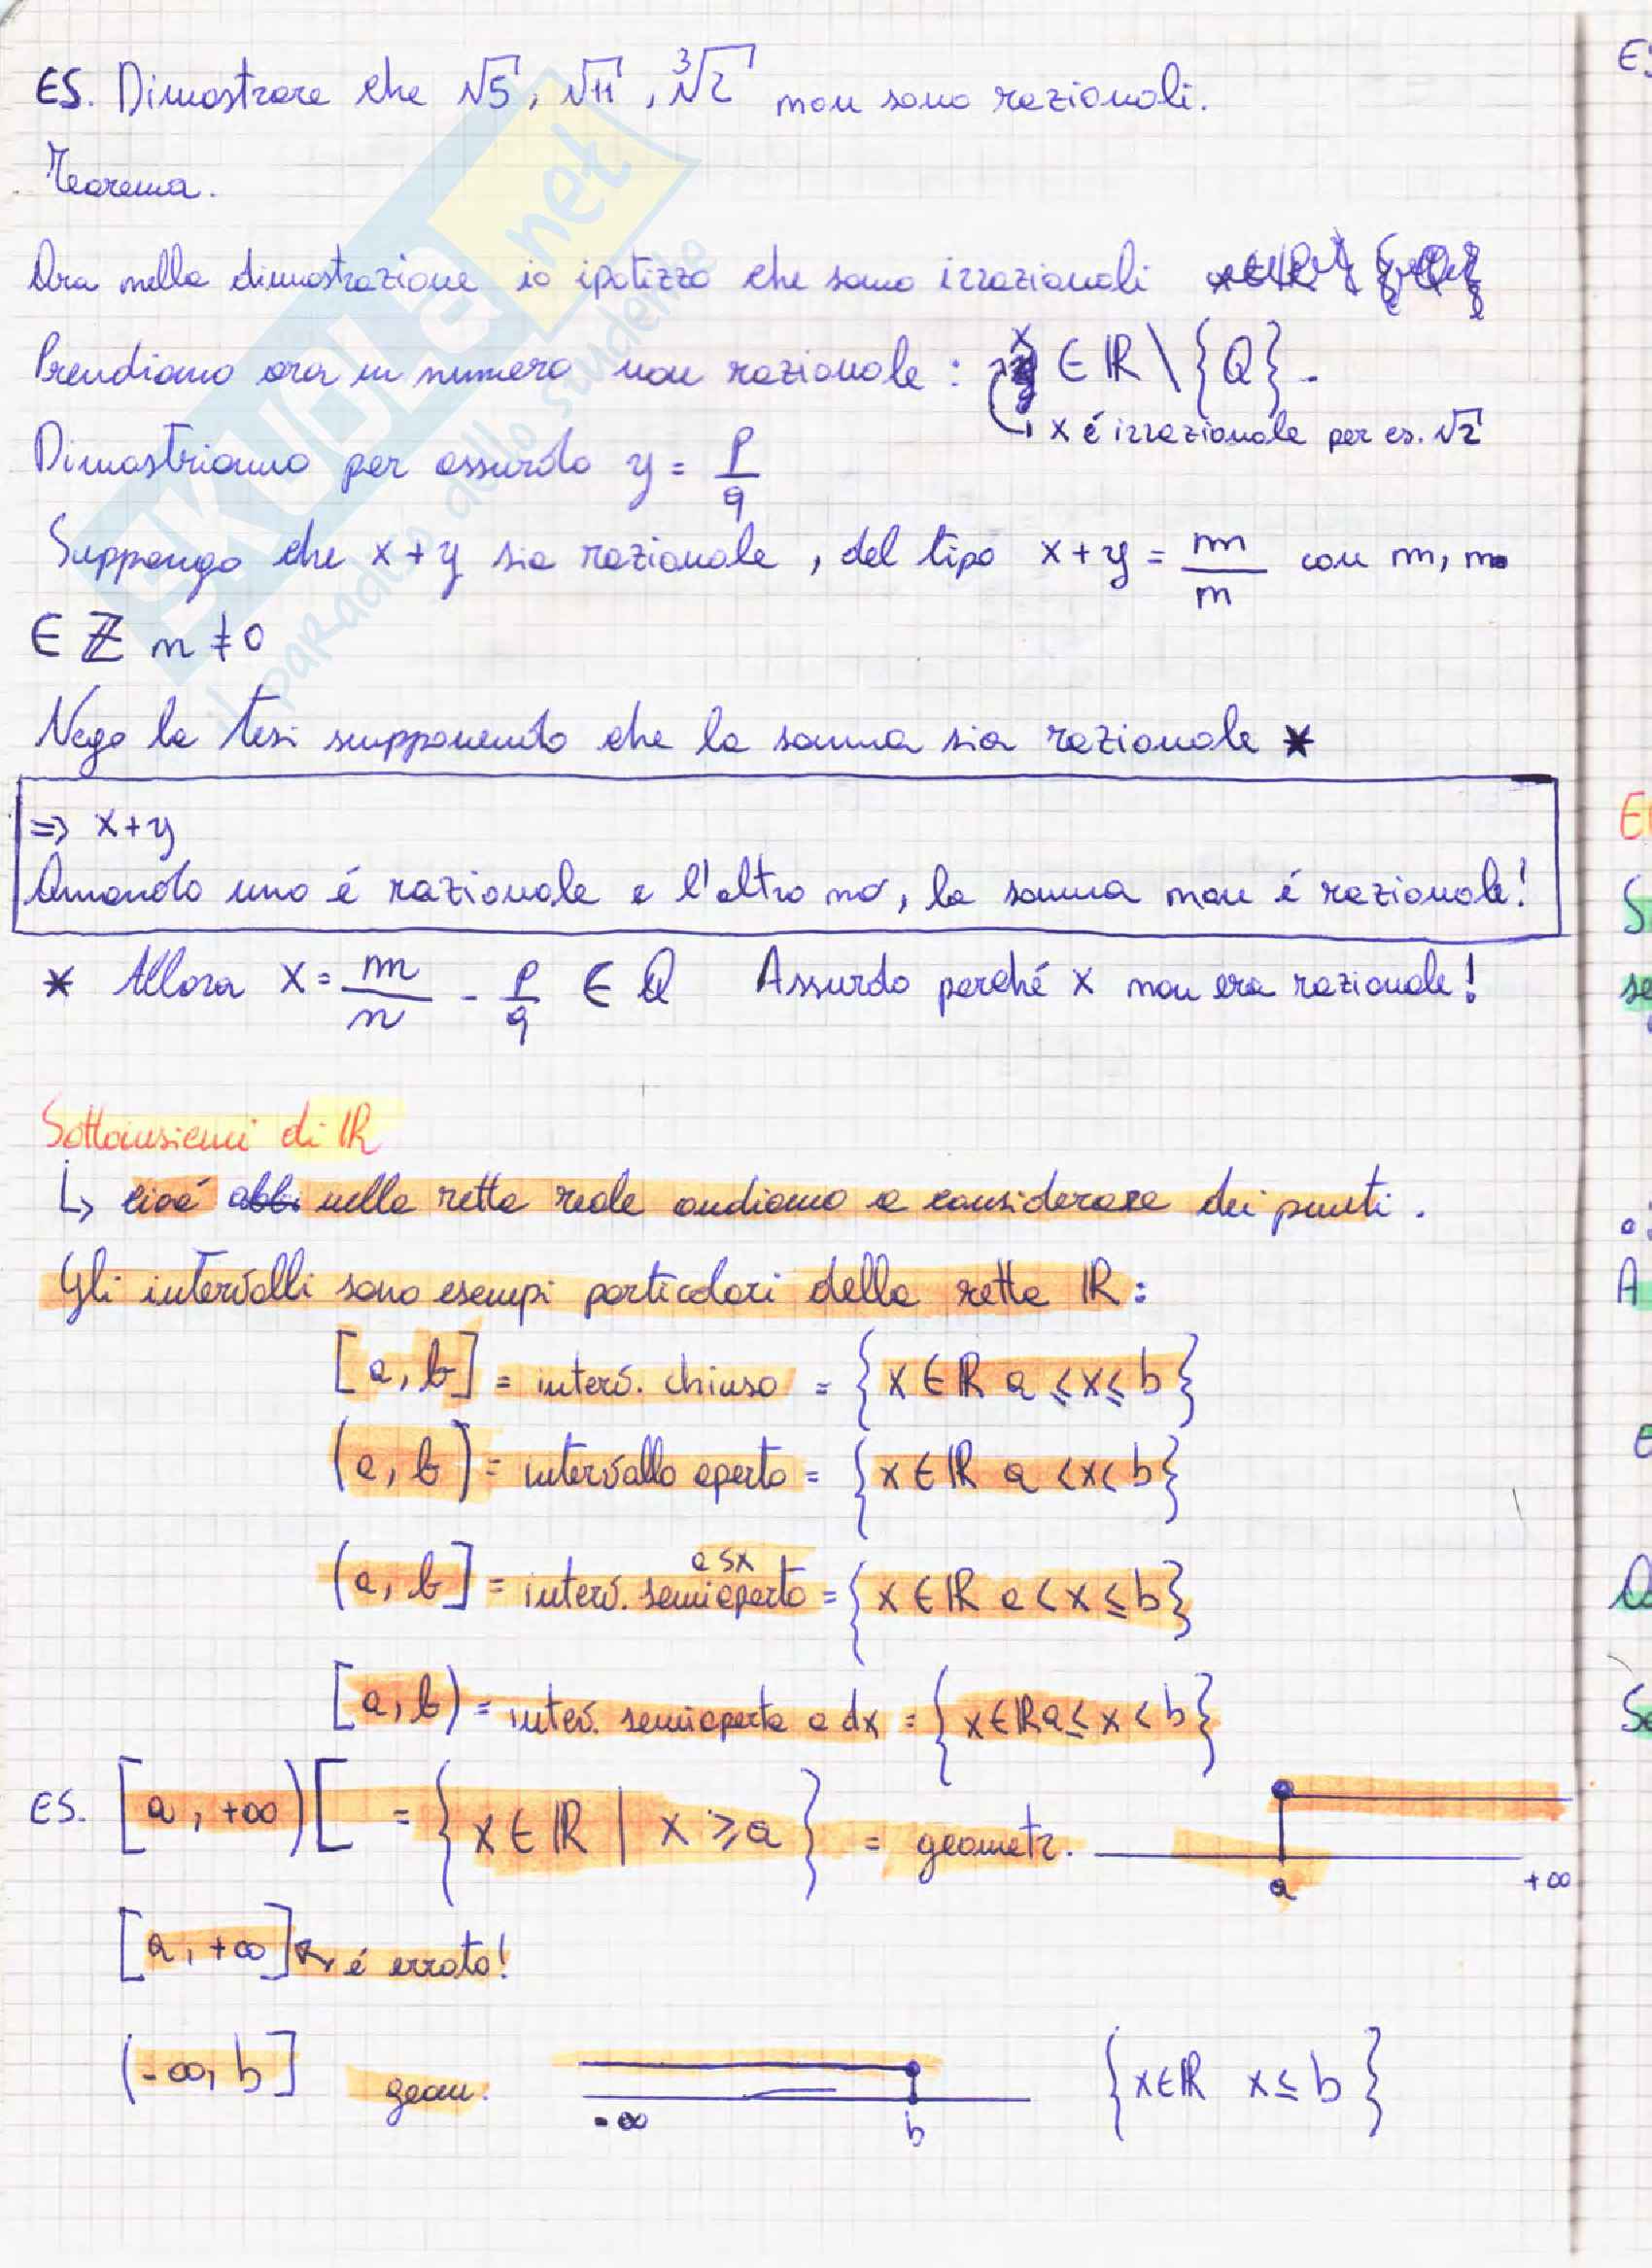 ES. Dimostrare che √5, √11, ∛2 non sono razionali.
Teorema.
Ora nella dimostrazione io ipotizzo che sono irrazionali
Prendiamo ora un numero non razionale : x ∈ ℝ \ {Q}.
x é irrazionale per es. √2
Dimostriamo per assurdo y = p/q
Suppongo che x+y sia razionale, del tipo x+y = m/n con m, n
∈ ℤ n ≠ 0
Nego la tesi supponendo che la somma sia razionale *
=> x+y
Quando uno é razionale e l'altro no, la somma non é razionale!
* Allora x = m/n - p/q ∈ Q Assurdo perché x non era razionale!
Sottoinsiemi di ℝ
↳ cioé nella retta reale andiamo a considerare dei punti.
Gli intervalli sono esempi particolari della retta ℝ:
[a, b] = interv. chiuso = {x ∈ ℝ a ≤ x ≤ b}
(a, b) = intervallo aperto = {x ∈ ℝ a < x < b}
(a, b] = interv. semiaperto a sx = {x ∈ ℝ a < x ≤ b}
[a, b) = interv. semiaperto a dx = {x ∈ ℝ a ≤ x < b}
ES. [a, +∞) [ = {x ∈ ℝ | x ≥ a} = geometr.
a +∞
[a, +∞] é errato!
(-∞, b] geom. {x ∈ ℝ x ≤ b}
-∞ b
SKUOLA.net
il paradiso dello studente